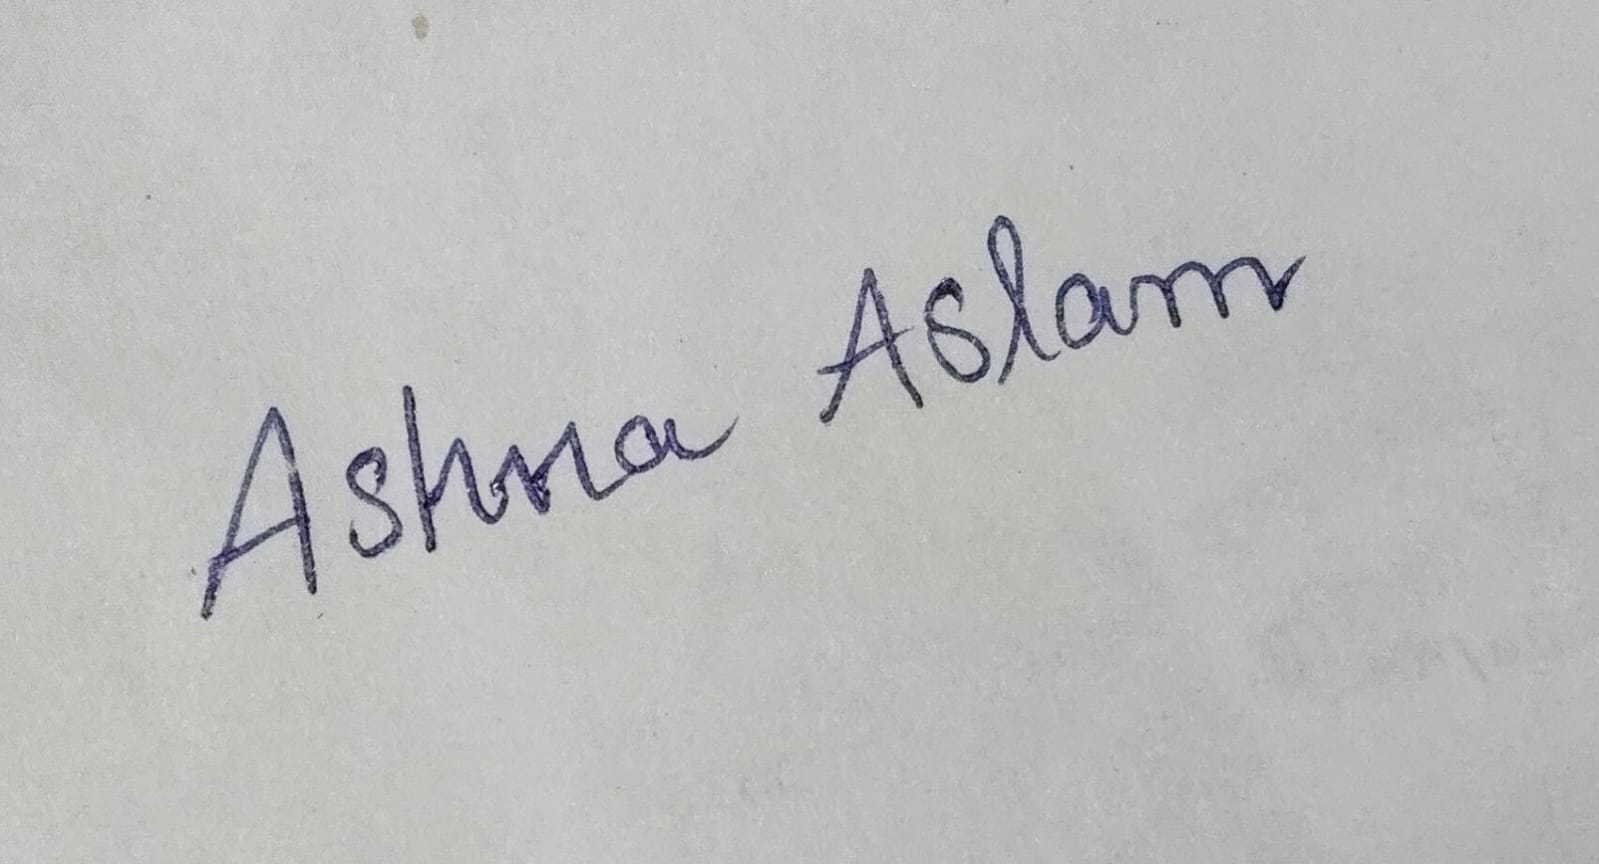 Ashna Aslam